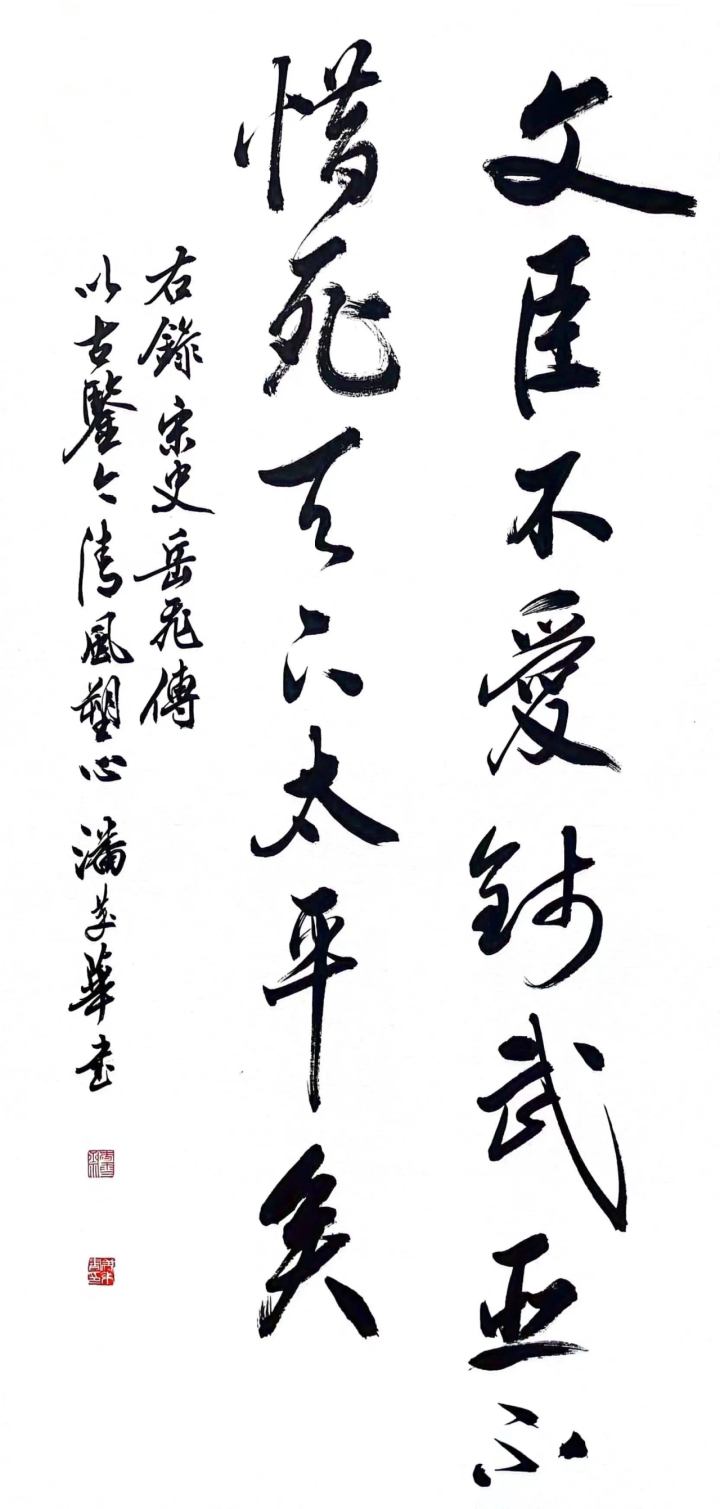 文臣不愛錢武臣不
惜死天下太平矣
右錄宋史岳飛傳
以古鑒今清風塑心 潘華書